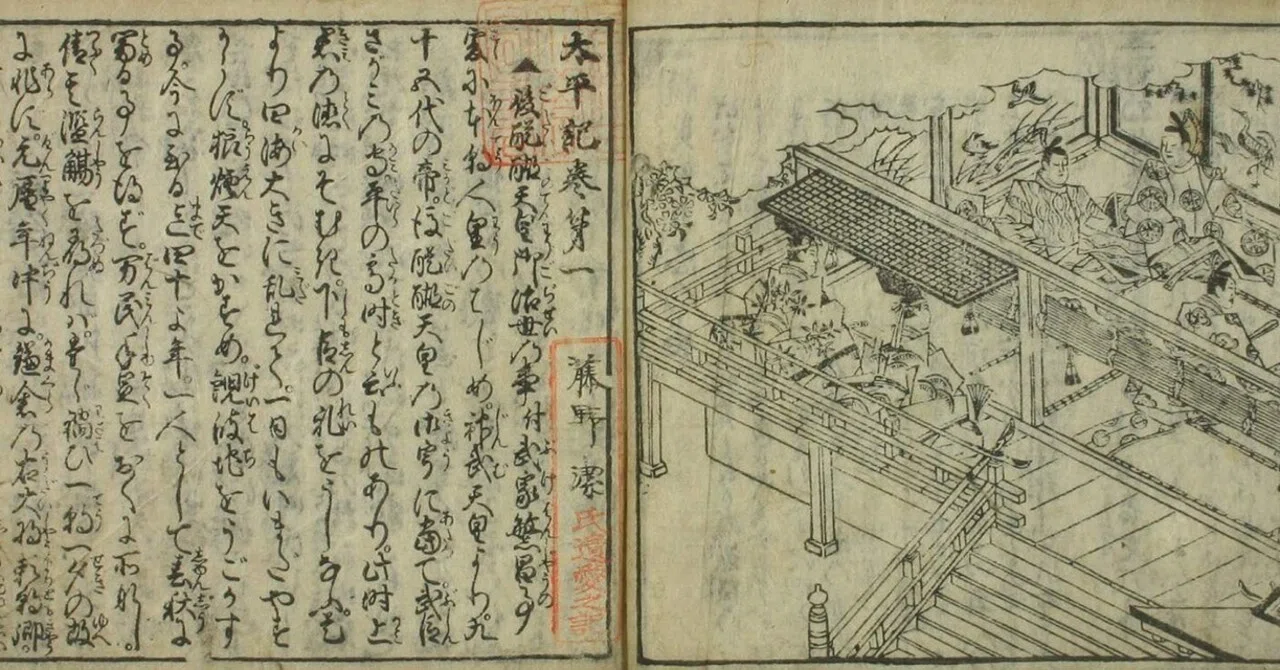 太平記巻第一
藤野潔
氏遺愛之記
▲後醍醐天皇御治世乃事付武家繁昌事
爰に本朝人皇乃はじめ。神武天皇より。九
十五代の帝。後醍醐天皇乃御宇に當て武臣
さがミ乃守平の高時と云ものあり此時上
君乃徳にそむき。下臣の礼をうしなふ。是
より四海大きに乱て。一日もいまだやす
からず。狼煙天をかすめ。鯢波地をうごかす
事。今にいたる迄四十よ年。一人として春秋に
富る事を得ず。万民手足をおくに所なし。
倩其濫觴を尋れバ。禍ひ一朝一夕の故
にあらず。元暦年中に。鎌倉乃右大将頼朝卿。